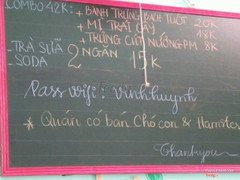 COMBO 42K: + BÁNH TRỨNG BẠCH TUỘT 20K
+ MÌ TRÁI CÂY 18K
+ TRỨNG CÚT NƯỚNG PM 8K
- TRÀ SỮA 2 NGĂN 15K
- SODA
Pass wife: vinhhuynh
* Quán có bán Chó con & Hamster
Thankyou